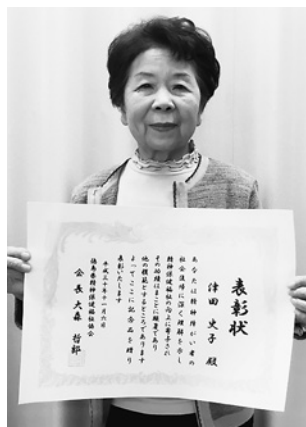 表彰状
津田 史子 殿
あなたは精神障がい者の
社会復帰に深く理解を示し
精神保健福祉の向上に寄与され
その功績はまことに顕著であり
他の模範とするところであります
よってここに記念品を贈り
表彰いたします
平成三十年十一月六日
徳島県精神保健福祉協会
会長 大森 哲郎